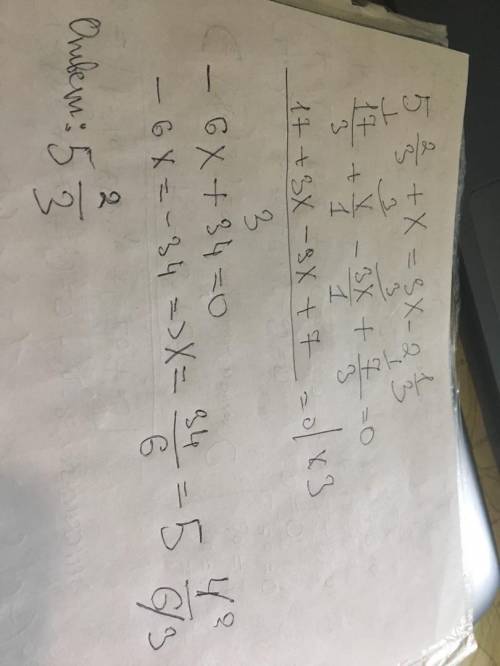 5 2/3 + x = 3x - 2 1/3
17/3 + x/1 - 3x/1 + 7/3 = 0
17 + 3x - 9x + 7 / 3 = 0 | x 3
- 6x + 34 = 0
- 6x = -34 => x = 34/6 = 5 4/6 2/3
Ответ: 5 2/3